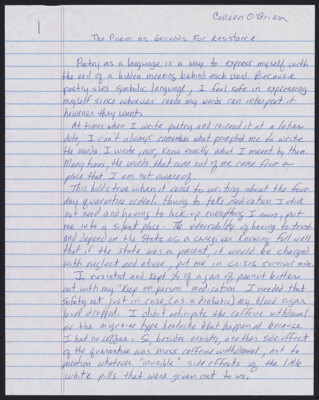 Colleen O'Brien
1
The Poem as Grounds For Resistance
Poetry as a language is a way to express myself with
the veil of a hidden meaning behind each word. Because
poetry uses symbolic language, I feel safe in expressing
myself since whoever reads my words can interpret it
however they want.
At times when I write poetry and re-read it at a later
date, I can't always remember what prompted me to write
the words I wrote, nor, know exactly what I meant by them.
Many times, the words that come out of me come from a
place that I am not aware of.
This holds true when it came to writing about the four
day quarantine ordeal. Having to take medication I did
not need and having to lock-up everything I own, put
me into a silent place. The vulnerability of having to trust
and depend on the State as a caregiver knowing full well
that if the state was a parent, it would be charged
with neglect and abuse, put me in crisis survival mode.
I resisted and kept ¼ of a jar of peanut butter
out with my "keep on person" medication. I needed that
safety net just in case, (as a diabetic) my blood sugar
level dropped. I didn't anticipate the caffeine withdrawal
or the migraine type headache that happened because
I had no coffee. So, besides anxiety, another side effect
of the quarantine was mass caffeine withdrawal, not to
mention whatever "invisible" side effects of the little
white pills that were given out to us.